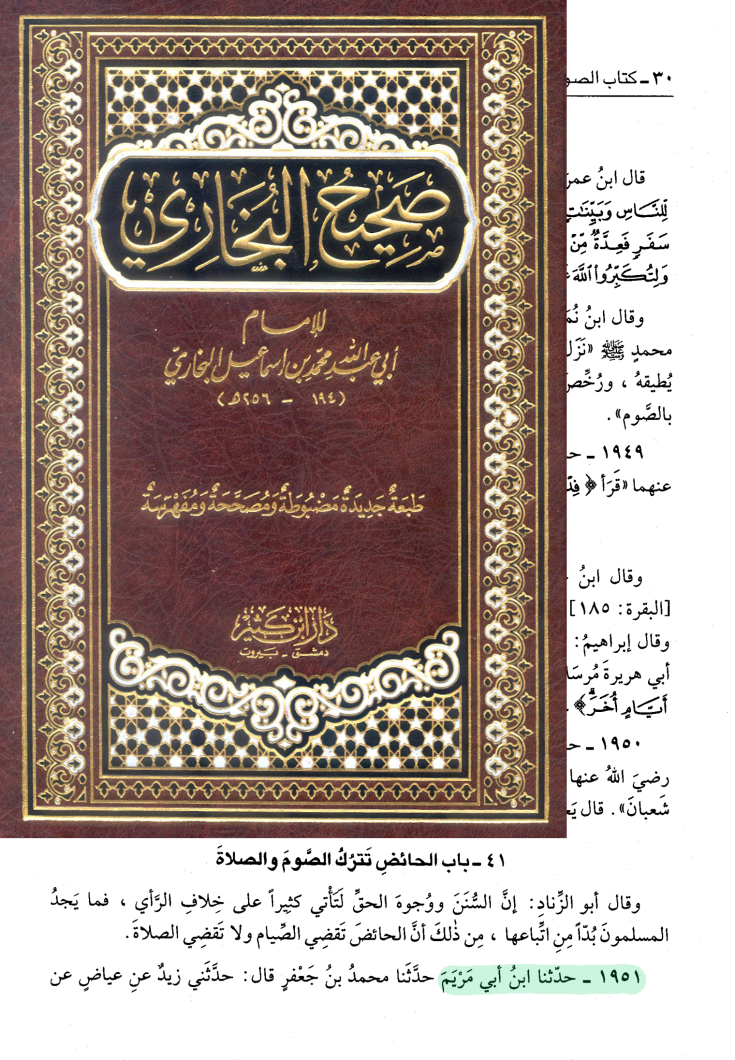 صَحِيحُ البُخَارِي
للإمام
أبي عبد الله محمد بن اسماعيل البخاريّ
(١٩٤ - ٢٥٦هـ)
طَبعَةٌ جَدِيدَةٌ مَضْبُوطَةٌ وَمُصَحَّحَةٌ وَمُفَهْرَسَةٌ
دَارُ ابن كَثير
دمشق - بيروت
٣٠ ـ كتاب الصو
قال ابنُ عمرَ
لِّلنَّاسِ وَبَيِّنَٰتٍ
سَفَرٍ فَعِدَّةٌ مِّنْ
وَلِتُكَبِّرُوا۟ ٱللَّهَ
وقال ابنُ نُمَ
محمدٍ ﷺ «نَزَل
يُطيقهُ ، ورُخِّصَ
بالصَّوم».
١٩٤٩ ـ حـ
عنهما «قَرَأ ﴿ فِدْ
وقال ابنُ
[البقرة: ١٨٥]
وقال إبراهيمُ:
أبي هريرةَ مُرسَا
أَيَّامٍ أُخَرَ﴾
١٩٥٠ ـ حـ
رضيَ اللهُ عنها
شَعبانَ». قال يَح
٤١ ـ باب الحائضِ تَترُكُ الصَّومَ والصلاةَ
وقال أبو الزِّنادِ: إنَّ السُّنَنَ ووُجوهَ الحقِّ لَتَأْتي كثِيراً على خِلافِ الرَّأي ، فما يَجدُ
المسلمونَ بُدّاً مِنِ اتِّباعها ، مِن ذٰلكَ أنَّ الحائضَ تَقضِي الصِّيام ولا تَقضِي الصلاةَ.
١٩٥١ ـ حدّثنا ابنُ أبي مَرْيَمَ حدَّثَنا محمدُ بنُ جَعْفرٍ قال: حدَّثَني زيدٌ عنِ عياضٍ عن